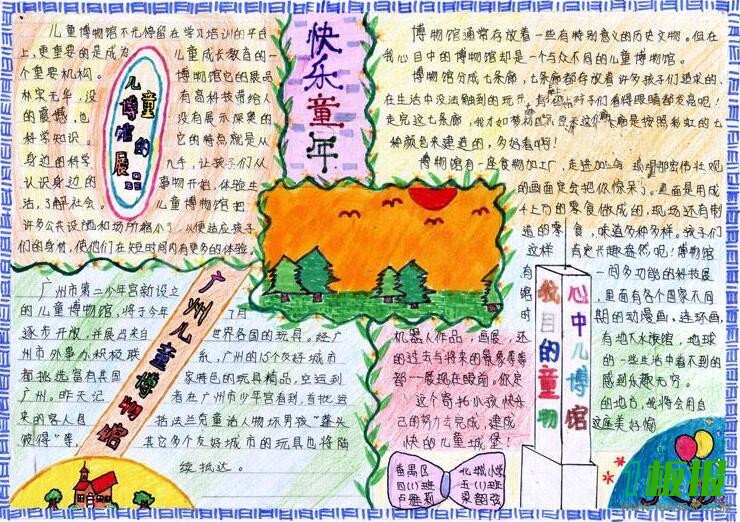 快乐童年
儿童博物馆的展品
儿童博物馆不光停留在学习培训的平台
上,更重要的是成为儿童成长教育的一
个重要机构。博物馆它的展品
林宋无华,没有高科技带给人
的震撼,也没有展示深奥的
科学知识。它的特点就是从
身边的科学几乎,让孩子们从
认识身边的事物开始,体验生
活,了解社会。儿童博物馆把
许多公共设施和场所缩小了,以便适应孩子
们的身材,使他们在短时间内有更多的体验。
广州儿童博物馆
广州市第二少年宫新设立
的儿童博物馆,将于今年7月
逐步开放,并展出来自世界各国的玩具。经广
州市外事办积极联系,广州的15个友好城市
都挑选富有其国家特色的玩具精品,空运到
广州。昨天记者在广州市少年宫看到,首批运
来的客人包括法兰克童话人物坏男孩“蓬头
彼得”等,其它多个友好城市的玩具也将陆
续抵达。
博物馆通常存放着一些有特别意义的历史文物。但在
我心目中的博物馆却是一个与众不同的儿童博物馆。
博物馆分成七条廊,七条廊都存放着许多孩子们追求的、
在生活中没法触到的玩
孩子们看得眼睛都发亮呢!
走完这七条廊,我才如梦初
廊是按照彩虹的七
种颜色来建造的,多好看啊!
博物馆有一座食物加工厂,走进加
那宏伟壮观
的画面定会把你惊呆了。里面是用成
千上万的零食做成的,现场还有制
造的零食,味道多种多样。孩子们
这样肯定兴趣盎然呢!博物馆
心中儿博馆
我目的童物
馆一间多功能的科技展
时里面有各个国家不同
期的动漫画,连环画,
机器人作品,画展,还有地下水族馆,地球
的过去与将来的景象等等的一些生活中看不到的
都一展现在眼前,你定感到乐趣无穷。
这个寄托小孩快乐的地方,我将会用自
己的努力去完成,建成这座美好愉
快的儿童城堡!
番禺区 北城小学
四(1)班 五(1)班
卢雅莉 梁韵弦
板报